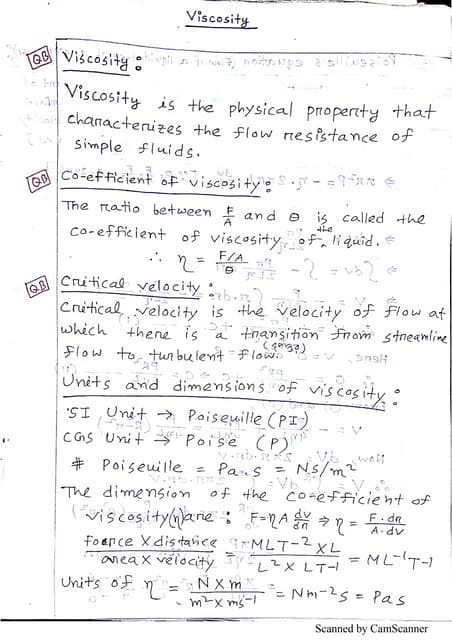 Viscosity
QB Viscosity :
Viscosity is the physical property that
characterizes the flow resistance of
simple fluids.
QB Co-efficient of viscosity :
The ratio between F/A and θ is called the
co-efficient of viscosity of the liquid.
∴ η = (F/A)/θ
QB Critical velocity :
Critical velocity is the velocity of flow at
which there is a transition from streamline
flow to turbulent flow.
Units and dimensions of viscosity :
SI Unit → Poiseuille (PI)
CGS Unit → Poise (P)
# Poiseuille = Pa.s = Ns/m²
The dimension of the co-efficient of
viscosity(η) are : F=ηA dv/dn ⇒ η = F.dn/A.dv
force X distance / area X velocity = MLT-2 XL / L² X LT-1 = ML-1T-1
Units of η = N X m / m² X ms-1 = Nm-2s = Pas
Scanned by CamScanner